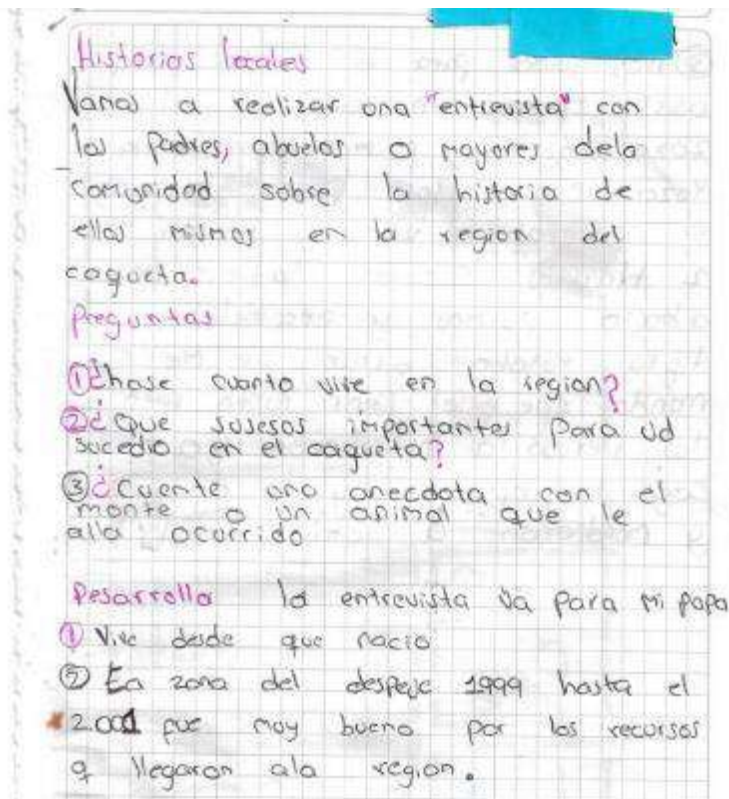 Historias locales
Vamos a realizar una "entrevista" con
los Padres, abuelos o mayores dela
comunidad sobre la historia de
ellos mismos en la region del
caqueta.
Preguntas
① ¿hase cuanto vive en la region?
② ¿que susesos importantes para ud
sucedio en el caqueta?
③ ¿Cuente una anecdota con el
monte o un animal que le
alla ocurrido
Desarrollo la entrevista va para mi papa
① Vive desde que nacio
② La zona del despeje 1999 hasta el
2.001 fue muy bueno por los recursos
q llegaron ala region.